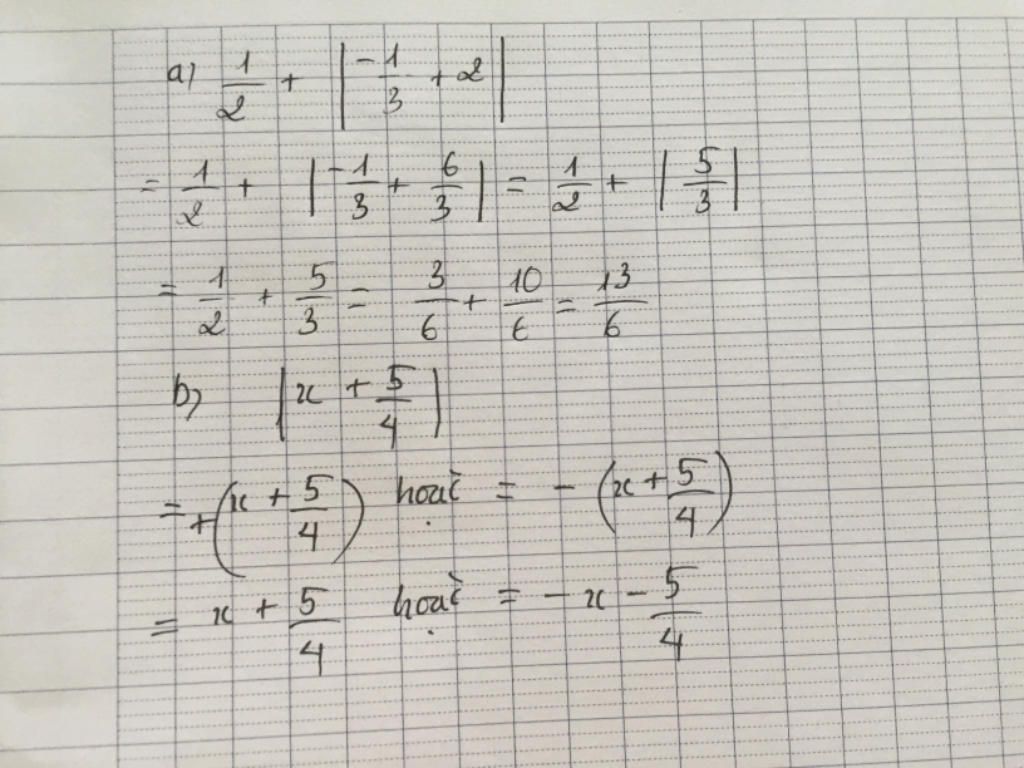 a) 1/2 + |-1/3 + 2|
= 1/2 + |-1/3 + 6/3| = 1/2 + |5/3|
= 1/2 + 5/3 = 3/6 + 10/6 = 13/6
b) |x + 5/4|
= +(x + 5/4) hoặc = - (x + 5/4)
= x + 5/4 hoặc = - x - 5/4